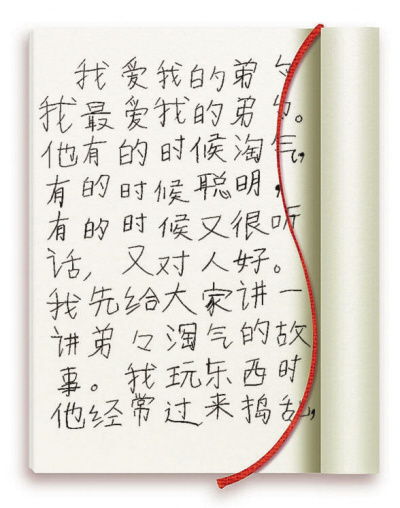 我爱我的弟々
我最爱我的弟々。
他有的时候淘气，
有的时候聪明，
有的时候又很听
话，又对人好。
我先给大家讲一
讲弟々淘气的故
事。我玩东西时
他经常过来捣乱，